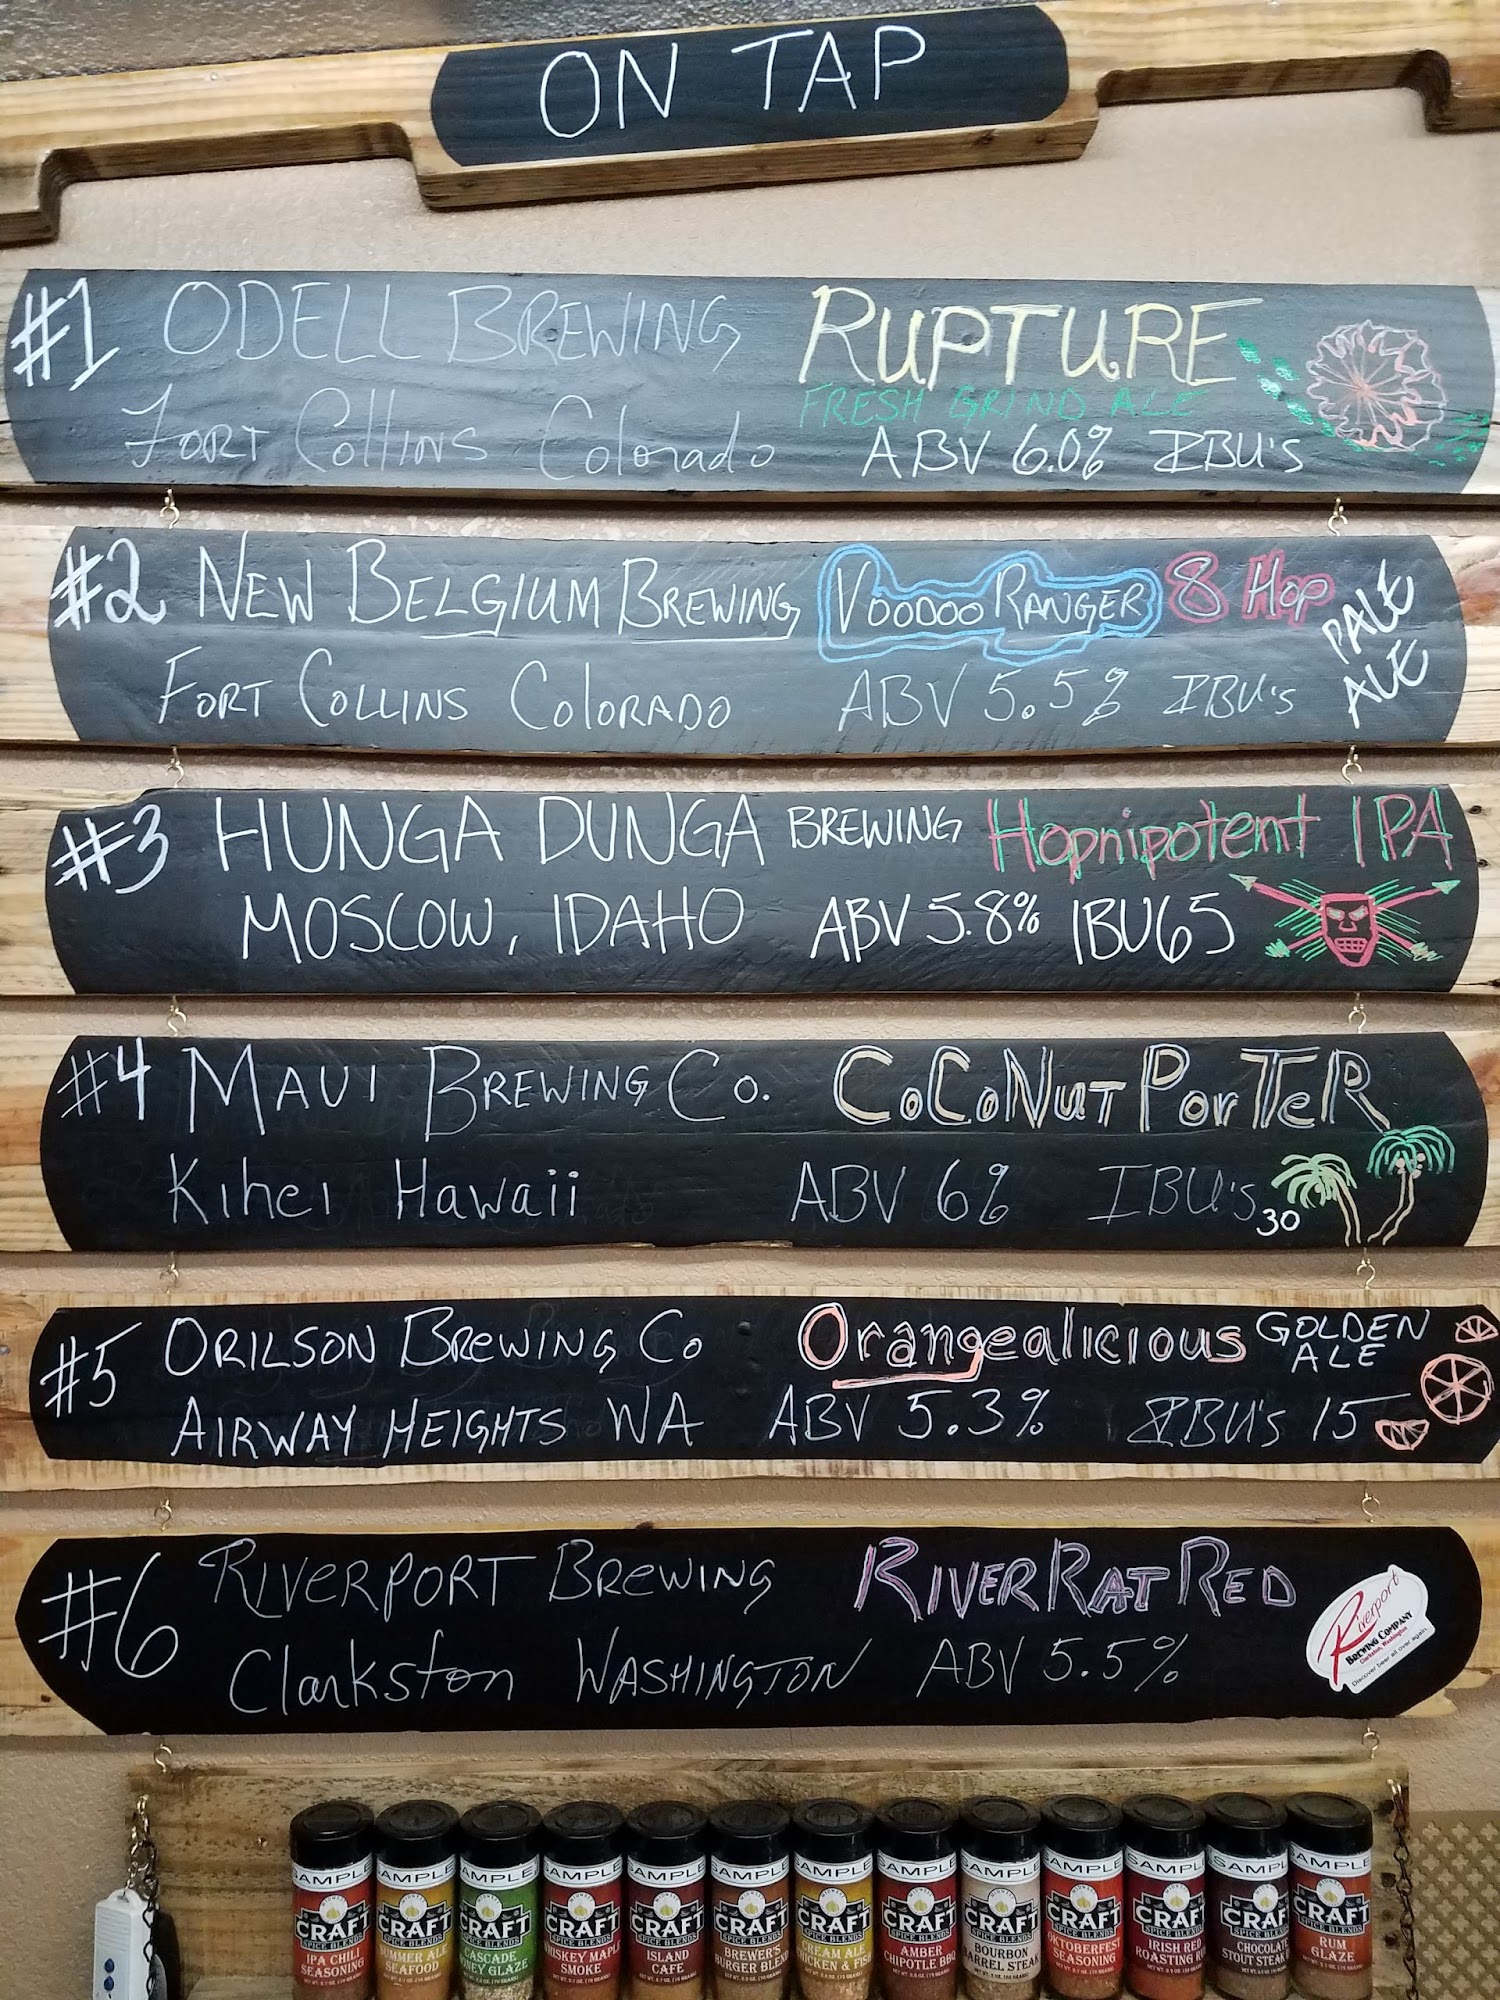 ON TAP
#1 ODELL BREWING RUPTURE
FRESH GRIND ALE
FORT Collins Colorado ABV 6.0% IBU's
#2 NEW BELGIUM BREWING VOODOO RANGER 8 HOP
PALE
ALE
FORT COLLINS COLORADO ABV 5.5% IBU's
#3 HUNGA DUNGA BREWING Hopnipotent IPA
MOSCOW, IDAHO ABV 5.8% IBU65
#4 MAUI BREWING CO. COCONUT PORTER
Kihei Hawaii ABV 6% IBU's 30
#5 ORILSON BREWING CO Orangealicious GOLDEN
ALE
AIRWAY HEIGHTS WA ABV 5.3% IBU's 15
#6 RIVERPORT BREWING RIVER RAT RED
Clarkston WASHINGTON ABV 5.5%
Riverport
BREWING COMPANY
Clarkston, Washington
Discover beer all over again.
SAMPLE SAMPLE SAMPLE SAMPLE SAMPLE SAMPLE SAMPLE SAMPLE SAMPLE SAMPLE SAMPLE SAMPLE SAMPLE
CRAFT CRAFT CRAFT CRAFT CRAFT CRAFT CRAFT CRAFT CRAFT CRAFT CRAFT CRAFT CRAFT
SPICE BLENDS SPICE BLENDS SPICE BLENDS SPICE BLENDS SPICE BLENDS SPICE BLENDS SPICE BLENDS SPICE BLENDS SPICE BLENDS SPICE BLENDS SPICE BLENDS SPICE BLENDS SPICE BLENDS
IPA CHILI
SEASONING
SUMMER ALE
SEAFOOD
CASCADE
HONEY GLAZE
WHISKEY MAPLE
SMOKE
ISLAND
CAFE
BREWER'S
BURGER BLEND
CREAM ALE
CHICKEN & FISH
AMBER
CHIPOTLE BBQ
BOURBON
BARREL STEAK
OKTOBERFEST
SEASONING
IRISH RED
ROASTING
CHOCOLATE
STOUT STEAK
RUM
GLAZE